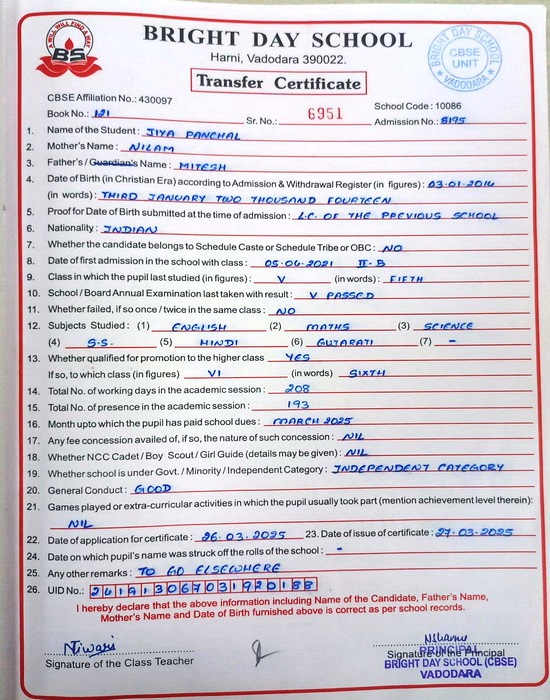 A WILL WILL FIND A WAY
BS
BRIGHT DAY SCHOOL
Harni, Vadodara 390022.
BRIGHT DAY SCHOOL
CBSE
UNIT
VADODARA
Transfer Certificate
CBSE Affiliation No.: 430097
School Code : 10086
Book No.: 121 Sr. No.: 6951 Admission No.: 8195
1. Name of the Student : JIYA PANCHAL
2. Mother's Name : NILAM
3. Father's / Guardian's Name : MITESH
4. Date of Birth (in Christian Era) according to Admission & Withdrawal Register (in figures) : 03.01.2014
(in words) : THIRD JANUARY TWO THOUSAND FOURTEEN
5. Proof for Date of Birth submitted at the time of admission : L.C. OF THE PREVIOUS SCHOOL
6. Nationality : INDIAN
7. Whether the candidate belongs to Schedule Caste or Schedule Tribe or OBC : NO
8. Date of first admission in the school with class : 05.04.2021 II-B
9. Class in which the pupil last studied (in figures) : V (in words) : FIFTH
10. School / Board Annual Examination last taken with result : V PASSED
11. Whether failed, if so once / twice in the same class : NO
12. Subjects Studied : (1) ENGLISH (2) MATHS (3) SCIENCE
(4) S.S. (5) HINDI (6) GUJARATI (7) -
13. Whether qualified for promotion to the higher class YES
If so, to which class (in figures) VI (in words) SIXTH
14. Total No. of working days in the academic session : 208
15. Total No. of presence in the academic session : 193
16. Month upto which the pupil has paid school dues : MARCH 2025
17. Any fee concession availed of, if so, the nature of such concession : NIL
18. Whether NCC Cadet / Boy Scout / Girl Guide (details may be given) : NIL
19. Whether school is under Govt. / Minority / Independent Category : INDEPENDENT CATEGORY
20. General Conduct : GOOD
21. Games played or extra-curricular activities in which the pupil usually took part (mention achievement level therein):
NIL
22. Date of application for certificate : 26.03.2025 23. Date of issue of certificate : 27.03.2025
24. Date on which pupil's name was struck off the rolls of the school : -
25. Any other remarks : TO GO ELSEWHERE
26. UID No.: 241913067031920188
I hereby declare that the above information including Name of the Candidate, Father's Name,
Mother's Name and Date of Birth furnished above is correct as per school records.
NTiwari
Signature of the Class Teacher
Signature of the Principal
PRINCIPAL
BRIGHT DAY SCHOOL (CBSE)
VADODARA